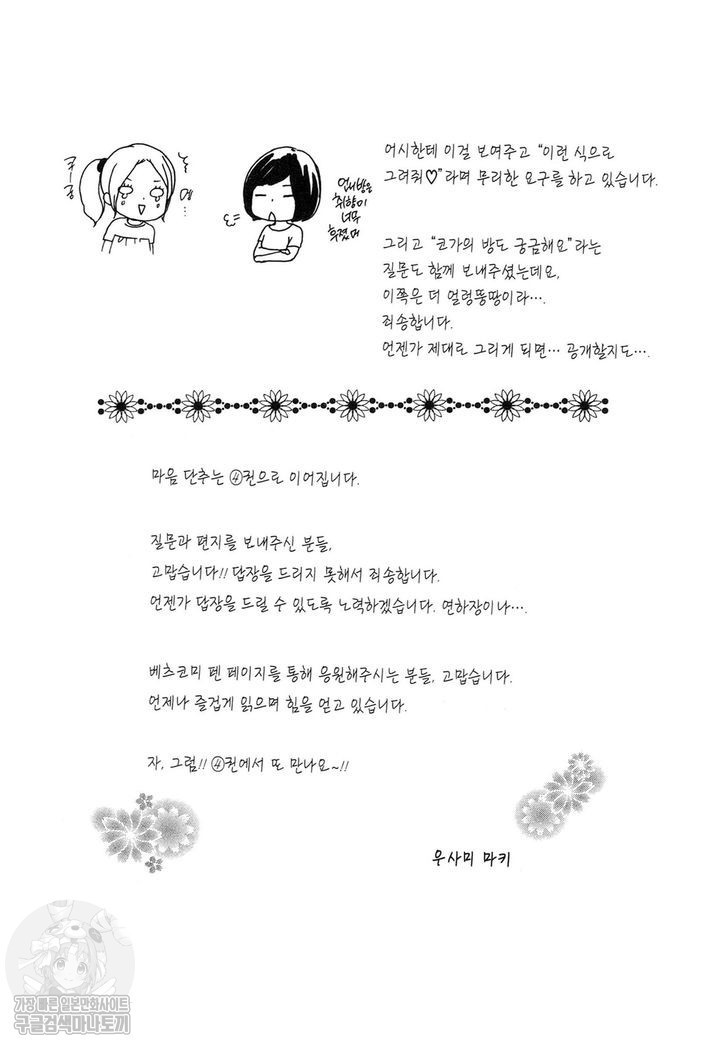 어시한테 이걸 보여주고 "이런 식으로
그려줘♡"라며 무리한 요구를 하고 있습니다.
쿠ㅡ궁
멍…
언니방은
취향이
너무
후졌어
그리고 "코가의 방도 궁금해요"라는
질문도 함께 보내주셨는데요,
이쪽은 더 얼렁뚱땅이라….
죄송합니다.
언젠가 제대로 그리게 되면… 공개할지도….
마음 단추는 ④권으로 이어집니다.
질문과 편지를 보내주신 분들,
고맙습니다!! 답장을 드리지 못해서 죄송합니다.
언젠가 답장을 드릴 수 있도록 노력하겠습니다. 연하장이나….
베츠코미 펜 페이지를 통해 응원해주시는 분들, 고맙습니다.
언제나 즐겁게 읽으며 힘을 얻고 있습니다.
자, 그럼!! ④권에서 또 만나요~!!
우사미 마키
가장 빠른 일본만화사이트
구글검색마나토끼